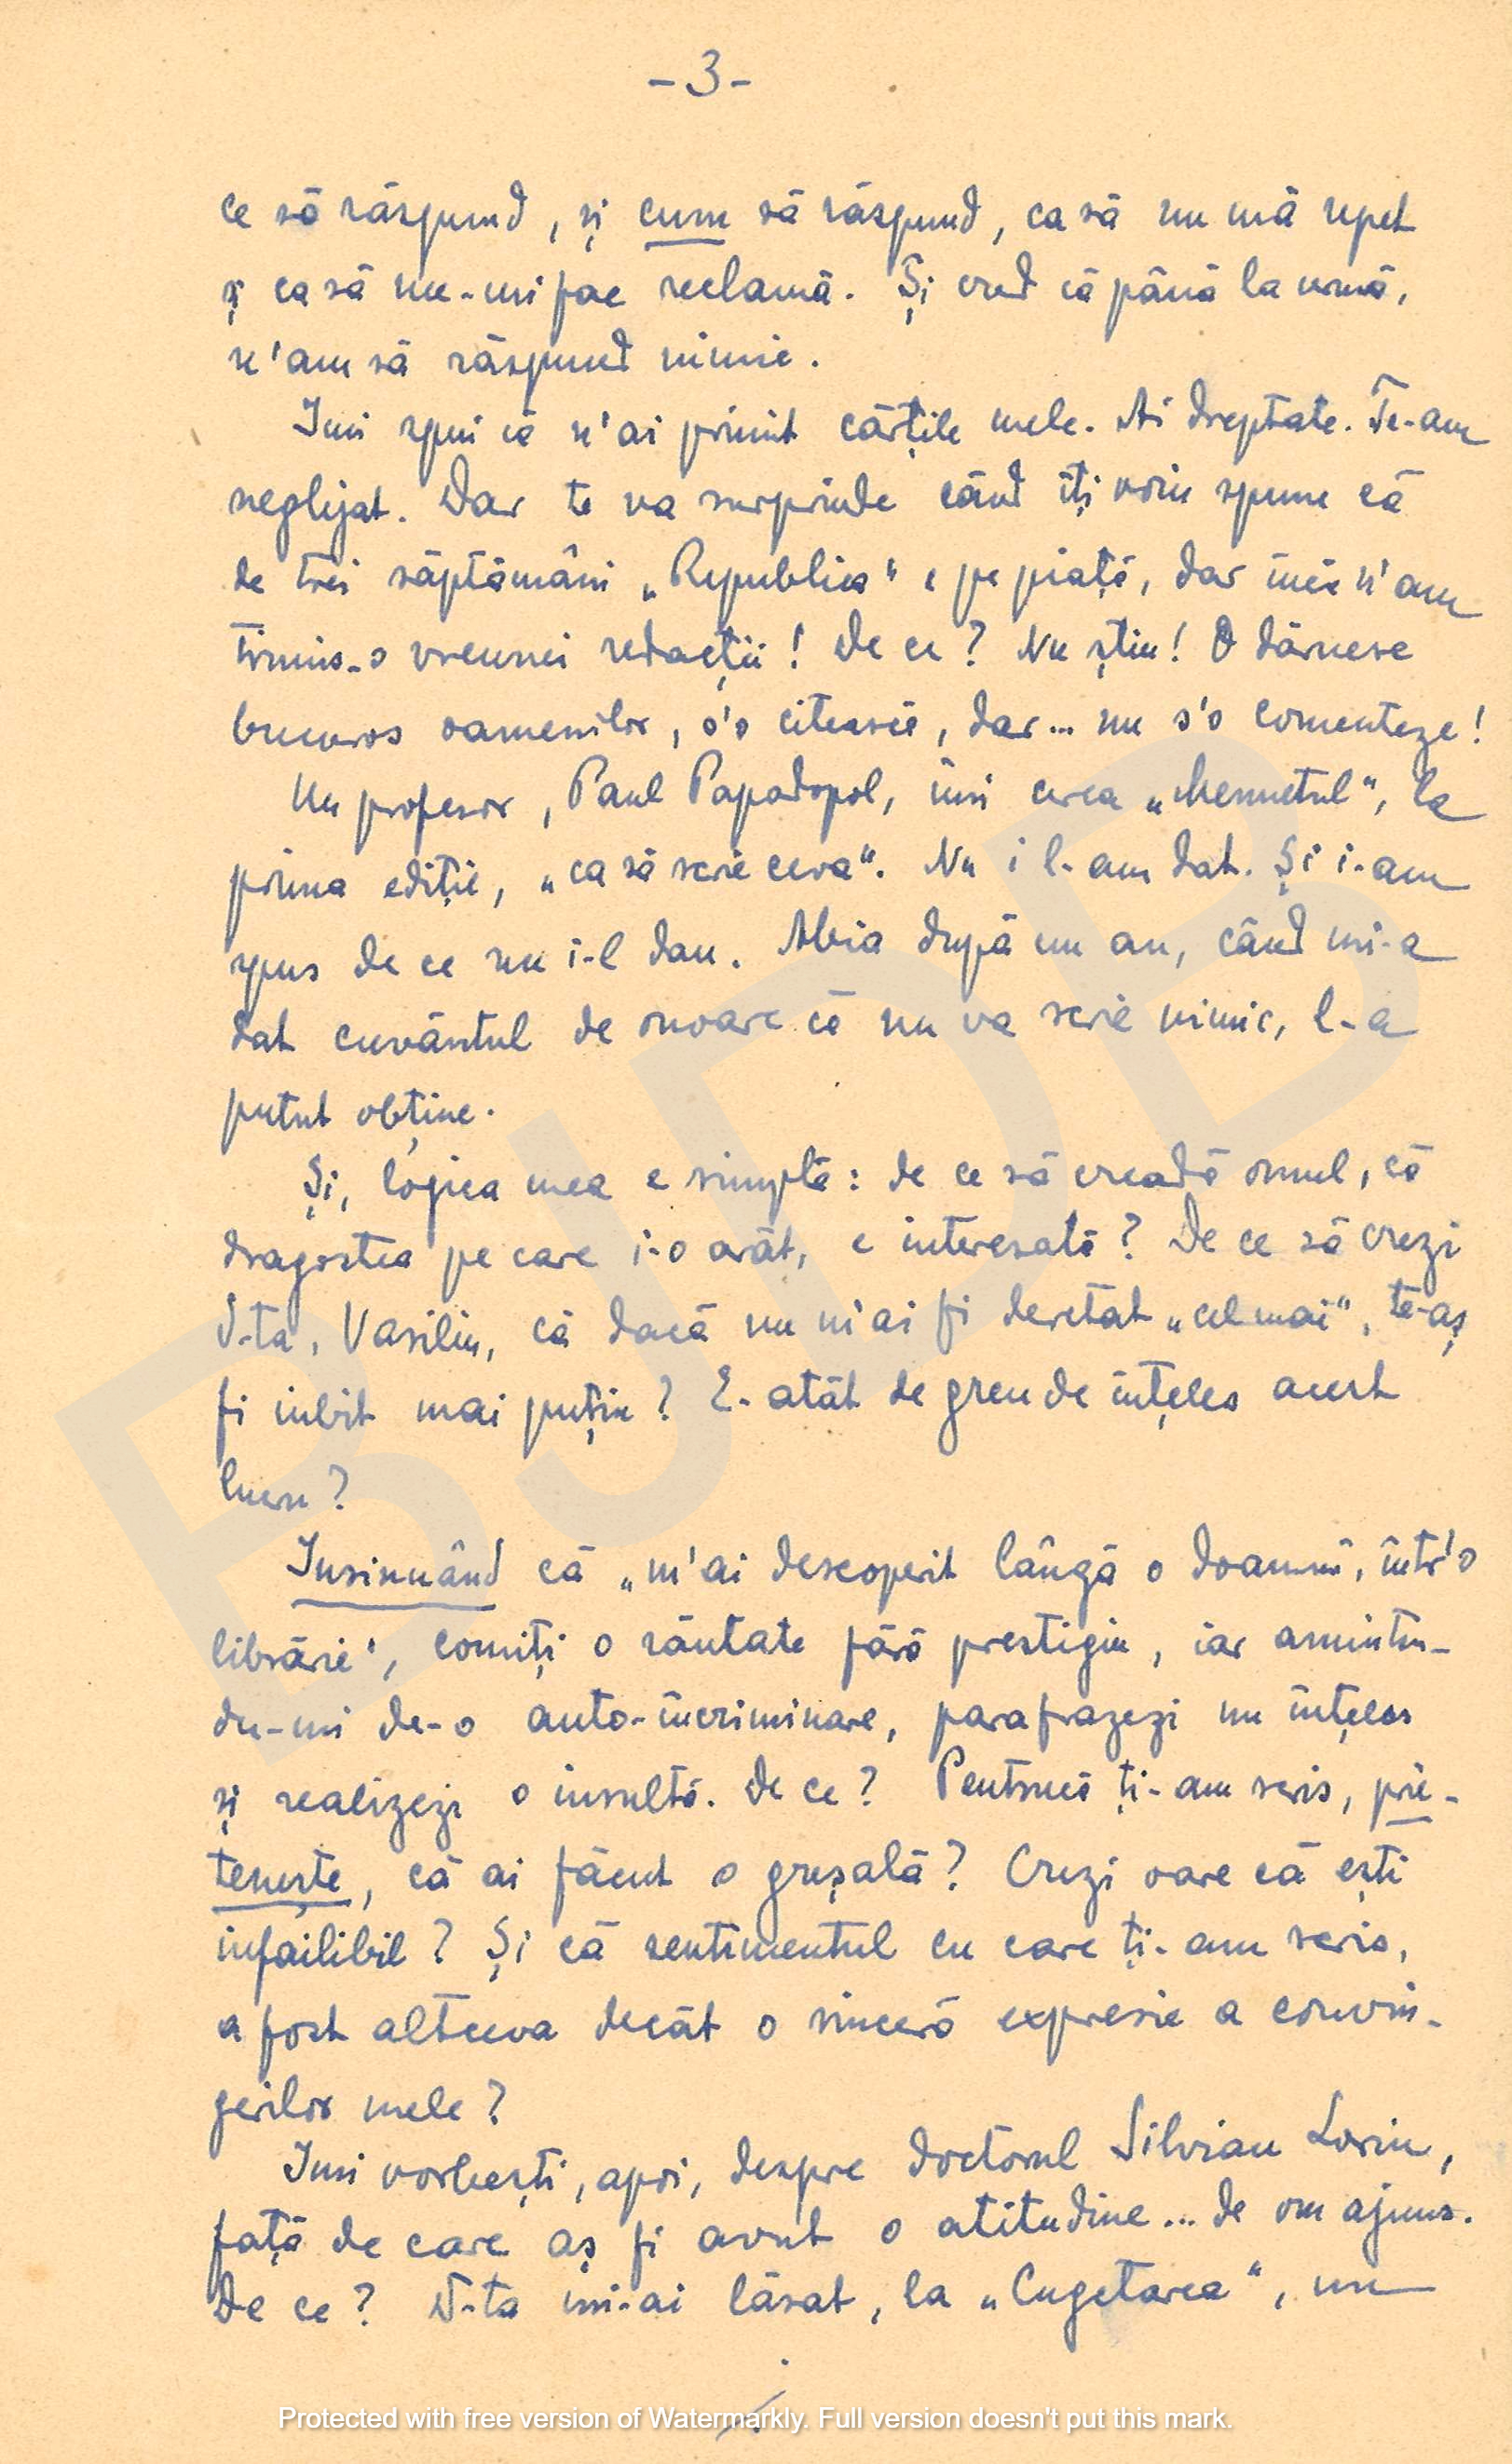 -3-
ce să răspund, și cum să răspund, ca să nu mă repet
și ca să nu-mi fac reclamă. Și cred că până la urmă,
n'am să răspund nimic.
Imi spui că n'ai primit cărțile mele. Ai dreptate. Te-am
neglijat. Dar te va surprinde când îți voiu spune că
de trei săptămâni „Republica" e pe piață, dar încă n'am
trimis-o vreunei redacții! De ce? Nu știu! O dăruesc
bucuros oamenilor, s'o citească, dar... nu s'o comenteze!
Un profesor, Paul Papadopol, îmi cerea „Menuetul", la
prima ediție, „ca să scrie ceva". Nu i l-am dat. Și i-am
spus de ce nu i-l dau. Abia după un an, când mi-a
dat cuvântul de onoare că nu va scrie nimic, l-a
putut obține.
Și, logica mea e simplă: de ce să creadă omul, că
dragostea pe care i-o arăt, e interesată? De ce să crezi
D-ta, Vasiliu, că dacă nu m'ai fi decretat „cel mai", te-aș
fi iubit mai puțin? E-atât de greu de înțeles acest
lucru?
Insinuând că „m'ai descoperit lângă o doamnă, într'o
librărie", comiți o răutate fără prestigiu, iar amintin-
du-mi de-o auto-incriminare, parafrazezi un înțeles
și realizezi o insultă. De ce? Pentrucă ți-am scris, prie-
tenește, că ai făcut o greșală? Crezi oare că ești
infailibil? Și că sentimentul cu care ți-am scris,
a fost altceva decât o sinceră expresie a convin-
gerilor mele?
Imi vorbești, apoi, despre doctorul Silvian Loriu,
față de care aș fi avut o atitudine... de om ajuns.
De ce? D-ta mi-ai lăsat, la „Cugetarea", un
Protected with free version of Watermarkly. Full version doesn't put this mark.
BJDB